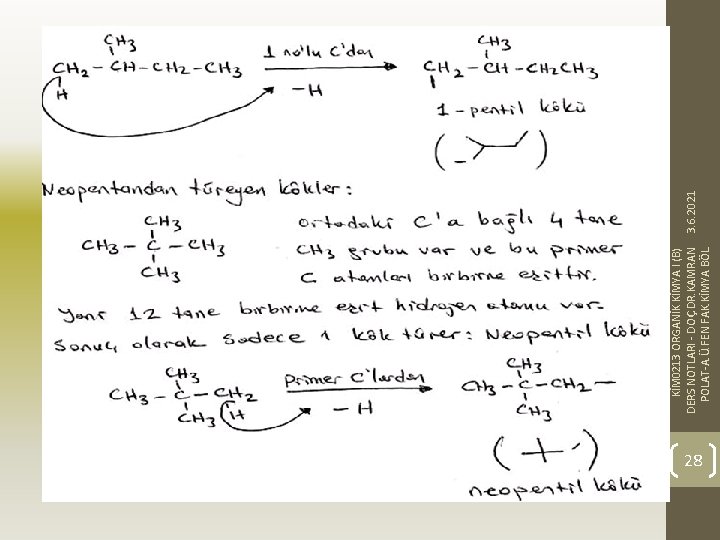 CH3
CH2-CH-CH2-CH3
H
1 no'lu C'dan
-H
CH3
CH2-CH-CH2CH3
1-pentil kökü
Neopentandan türeyen kökler:
CH3
CH3-C-CH3
CH3
Ortadaki C'a bağlı 4 tane
CH3 grubu var ve bu primer
C atomları birbirine eşittir.
Yani 12 tane birbirine eşit hidrojen atomu var.
Sonuç olarak sadece 1 kök türer: Neopentil kökü
CH3
CH3-C-CH2
CH3 H
Primer C'lardan
-H
CH3
CH3-C-CH2-
CH3
neopentil kökü
KİM0213 ORGANİK KİMYA I (B)
DERS NOTLARI - DOÇ.DR.KAMRAN
POLAT-A.Ü.FEN FAK.KİMYA BÖL
3.6.2021
28